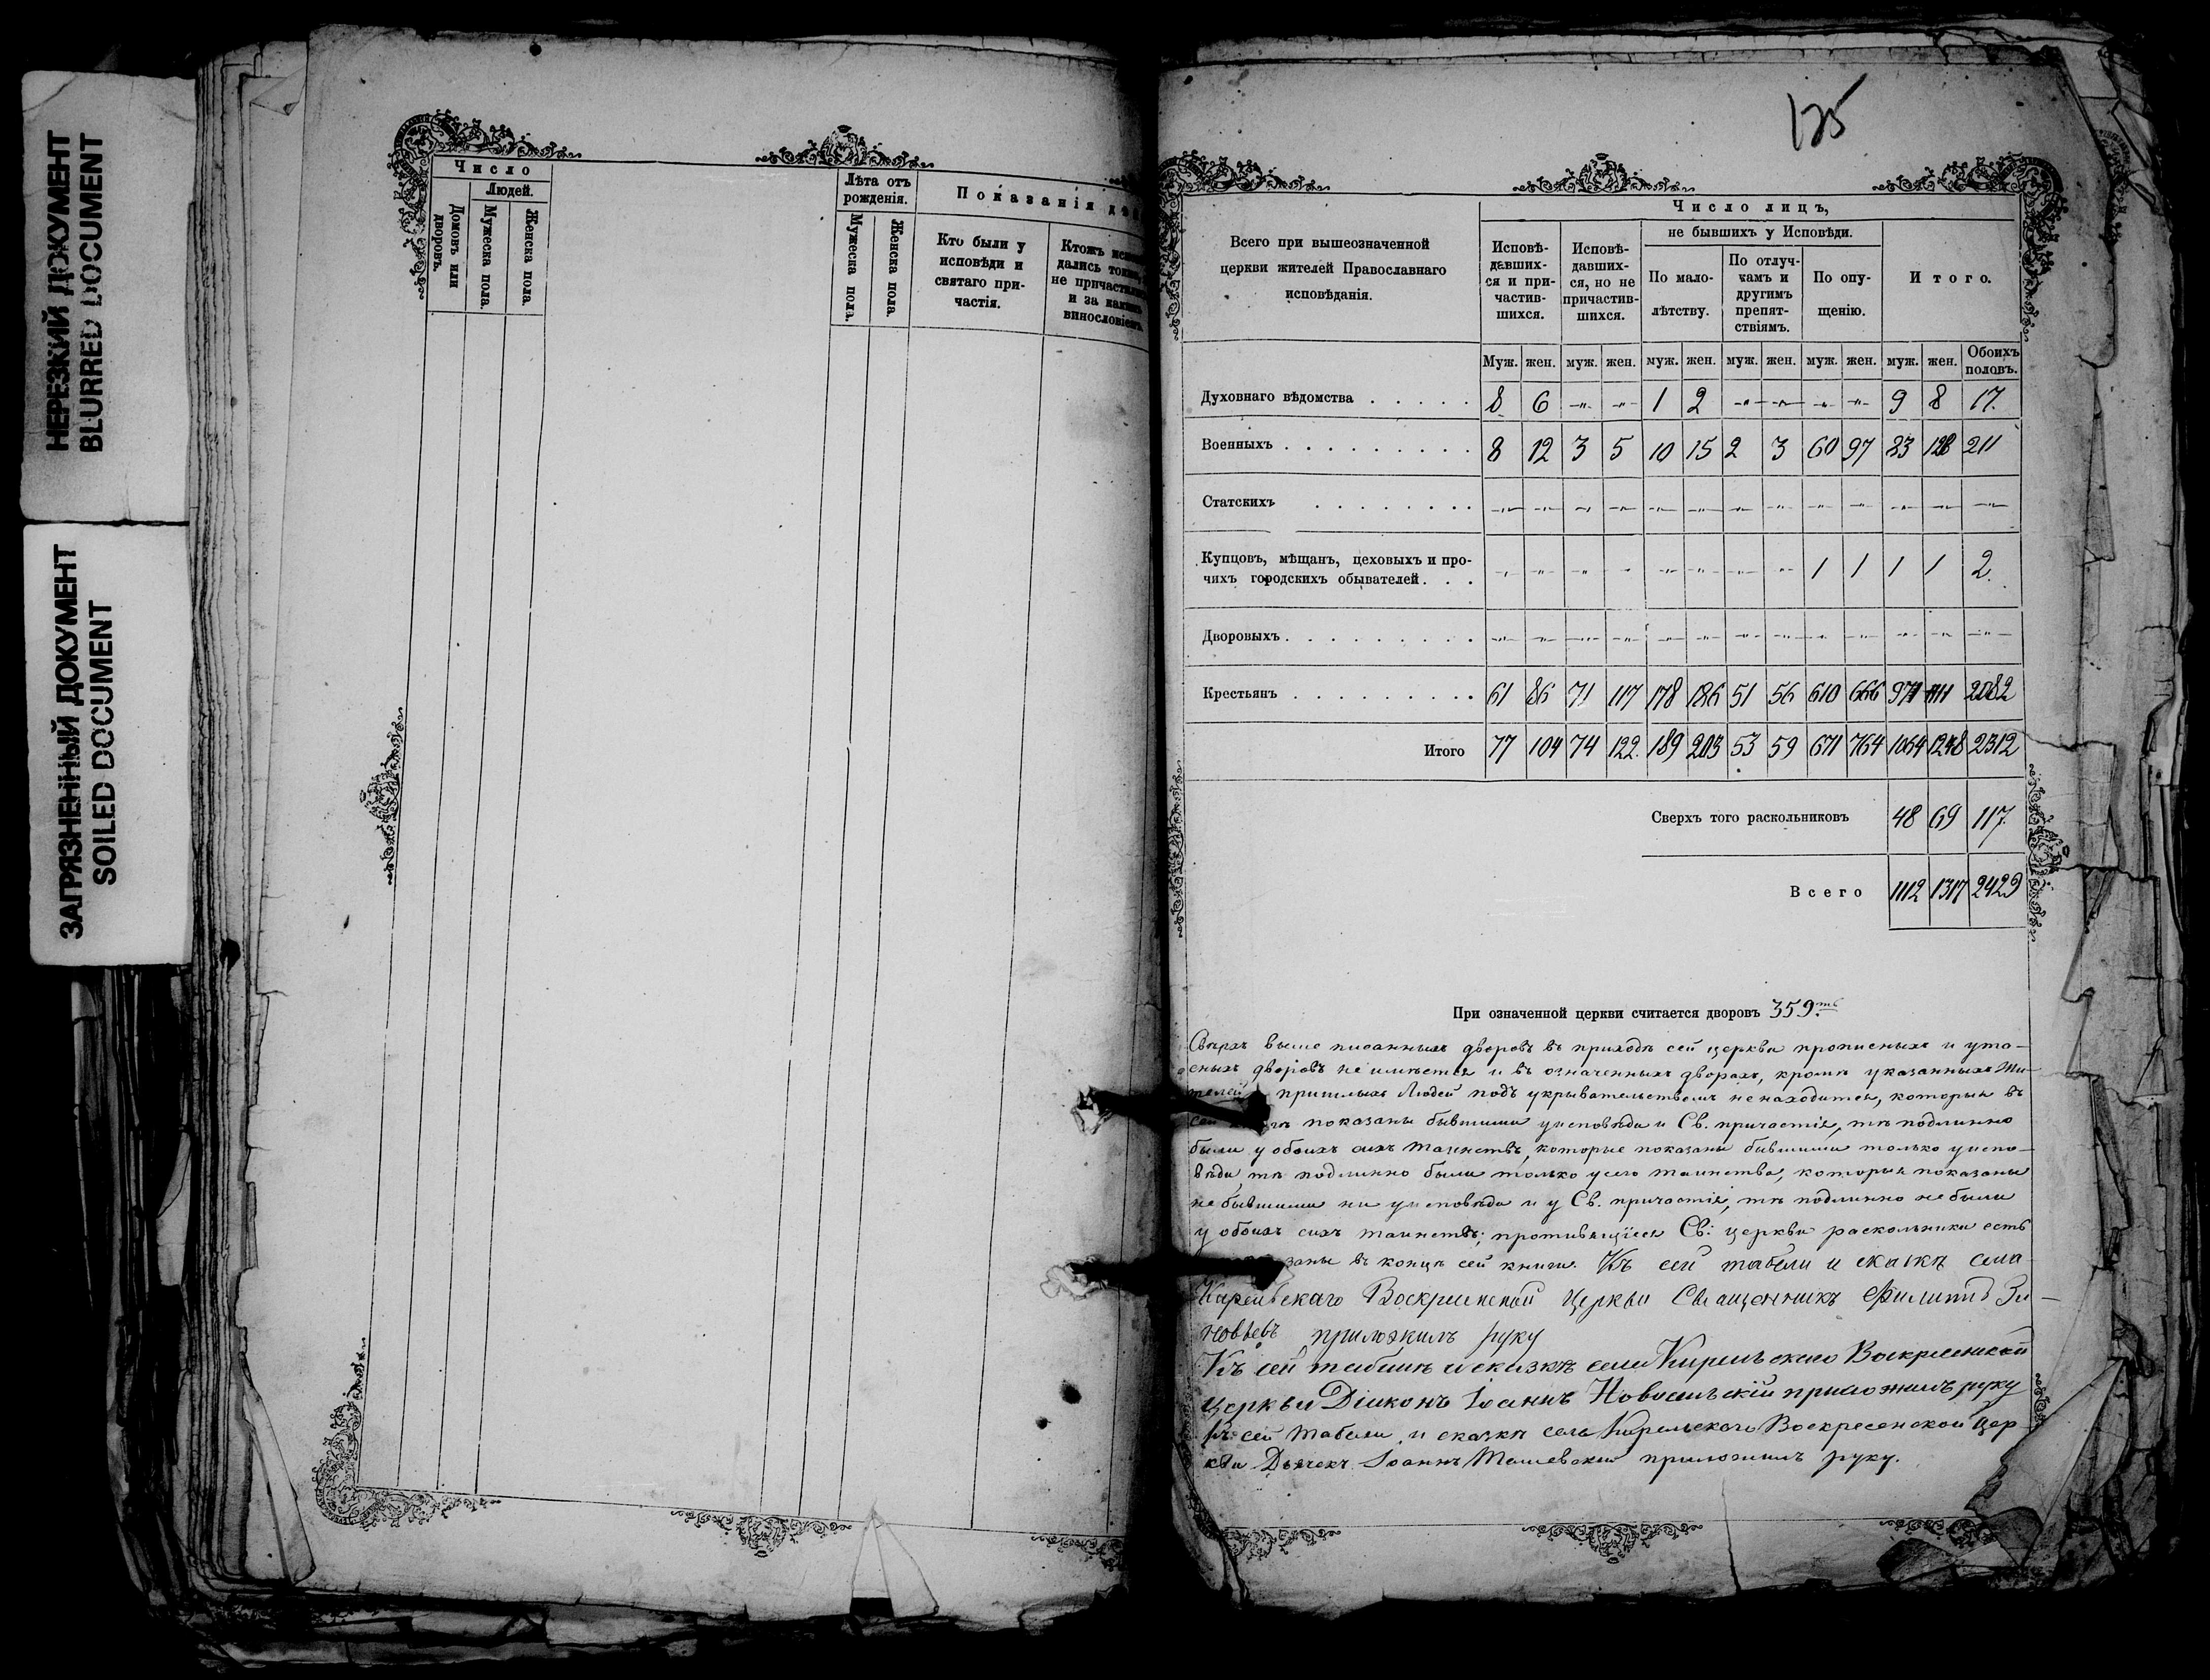 НЕРЕЗКИЙ ДОКУМЕНТ
BLURRED DOCUMENT
ЗАГРЯЗНЕННЫЙ ДОКУМЕНТ
SOILED DOCUMENT
Число
Людей.
Домовъ или дворовъ.
Мужеска пола.
Женска пола.
Лѣта отъ рожденія.
Мужеска пола.
Женска пола.
Показанія
Кто были у исповѣди и святаго причастія.
Ктожъ
дались
не
и за
винословіемъ
125
Всего при вышеозначенной
церкви жителей Православнаго
исповѣданія.
Число лицъ,
Исповѣ-
давших-
ся и при-
частив-
шихся.
Исповѣ-
давших-
ся, но не
причастив-
шихся.
не бывшихъ у Исповѣди.
По мало-
лѣтству.
По отлуч-
камъ и
другимъ
препят-
ствіямъ.
По опу-
щенію.
Итого.
Муж. жен. муж. жен. муж. жен. муж. жен. муж. жен. муж. жен. Обоихъ половъ.
Духовнаго вѣдомства 8 6 -„- -„- 1 2 -„- -„- -„- -„- 9 8 17.
Военныхъ 8 12 3 5 10 15 2 3 60 97 83 128 211
Статскихъ -„- -„- -„- -„- -„- -„- -„- -„- -„- -„- -„- -„- -„-
Купцовъ, мѣщанъ, цеховыхъ и про-
чихъ городскихъ обывателей -„- -„- -„- -„- -„- -„- -„- -„- 1 1 1 1 2.
Дворовыхъ -„- -„- -„- -„- -„- -„- -„- -„- -„- -„- -„- -„- -„-
Крестьянъ 61 86 71 117 178 186 51 56 610 666 971 1111 2082
Итого 77 104 74 122. 189 203 53 59 671 764 1064 1248 2312
Сверхъ того раскольниковъ 48 69 117.
Всего 1112 1317 2429
При означенной церкви считается дворовъ 359.ть
Сверхъ выше писанныхъ дворовъ въ приходѣ сей церкви прописныхъ и ута-
еныхъ дворовъ не имѣется и въ означенныхъ дворахъ, кромѣ указанныхъ жи-
телей пришлыхъ людей подъ укрывательствомъ не находится, которыя въ
сей показаны бывшими у исповѣди и Св. причастія, тѣ подлинно
были у обоихъ сихъ таинствъ, которые показаны бывшими только у испо-
вѣди, тѣ подлинно были только у сего таинства, которыя показаны
не бывшими ни у исповѣди и у Св. причастія, тѣ подлинно не были
у обоихъ сихъ таинствъ; противящіеся Св: церкви раскольники есть
въ концѣ сей книги. Къ сей табели и сказкѣ села
Кирельскаго Воскресенской Церкви Священникъ Филиппъ Зи-
новьевъ приложилъ руку
Къ сей табели и сказкѣ села Кирельскаго Воскресенской
церкви Діаконъ Іоаннъ Новосельскій приложилъ руку
Къ сей табели и сказкѣ села Кирельскаго Воскресенской Цер-
кви Дьячекъ Іоаннъ приложилъ руку.